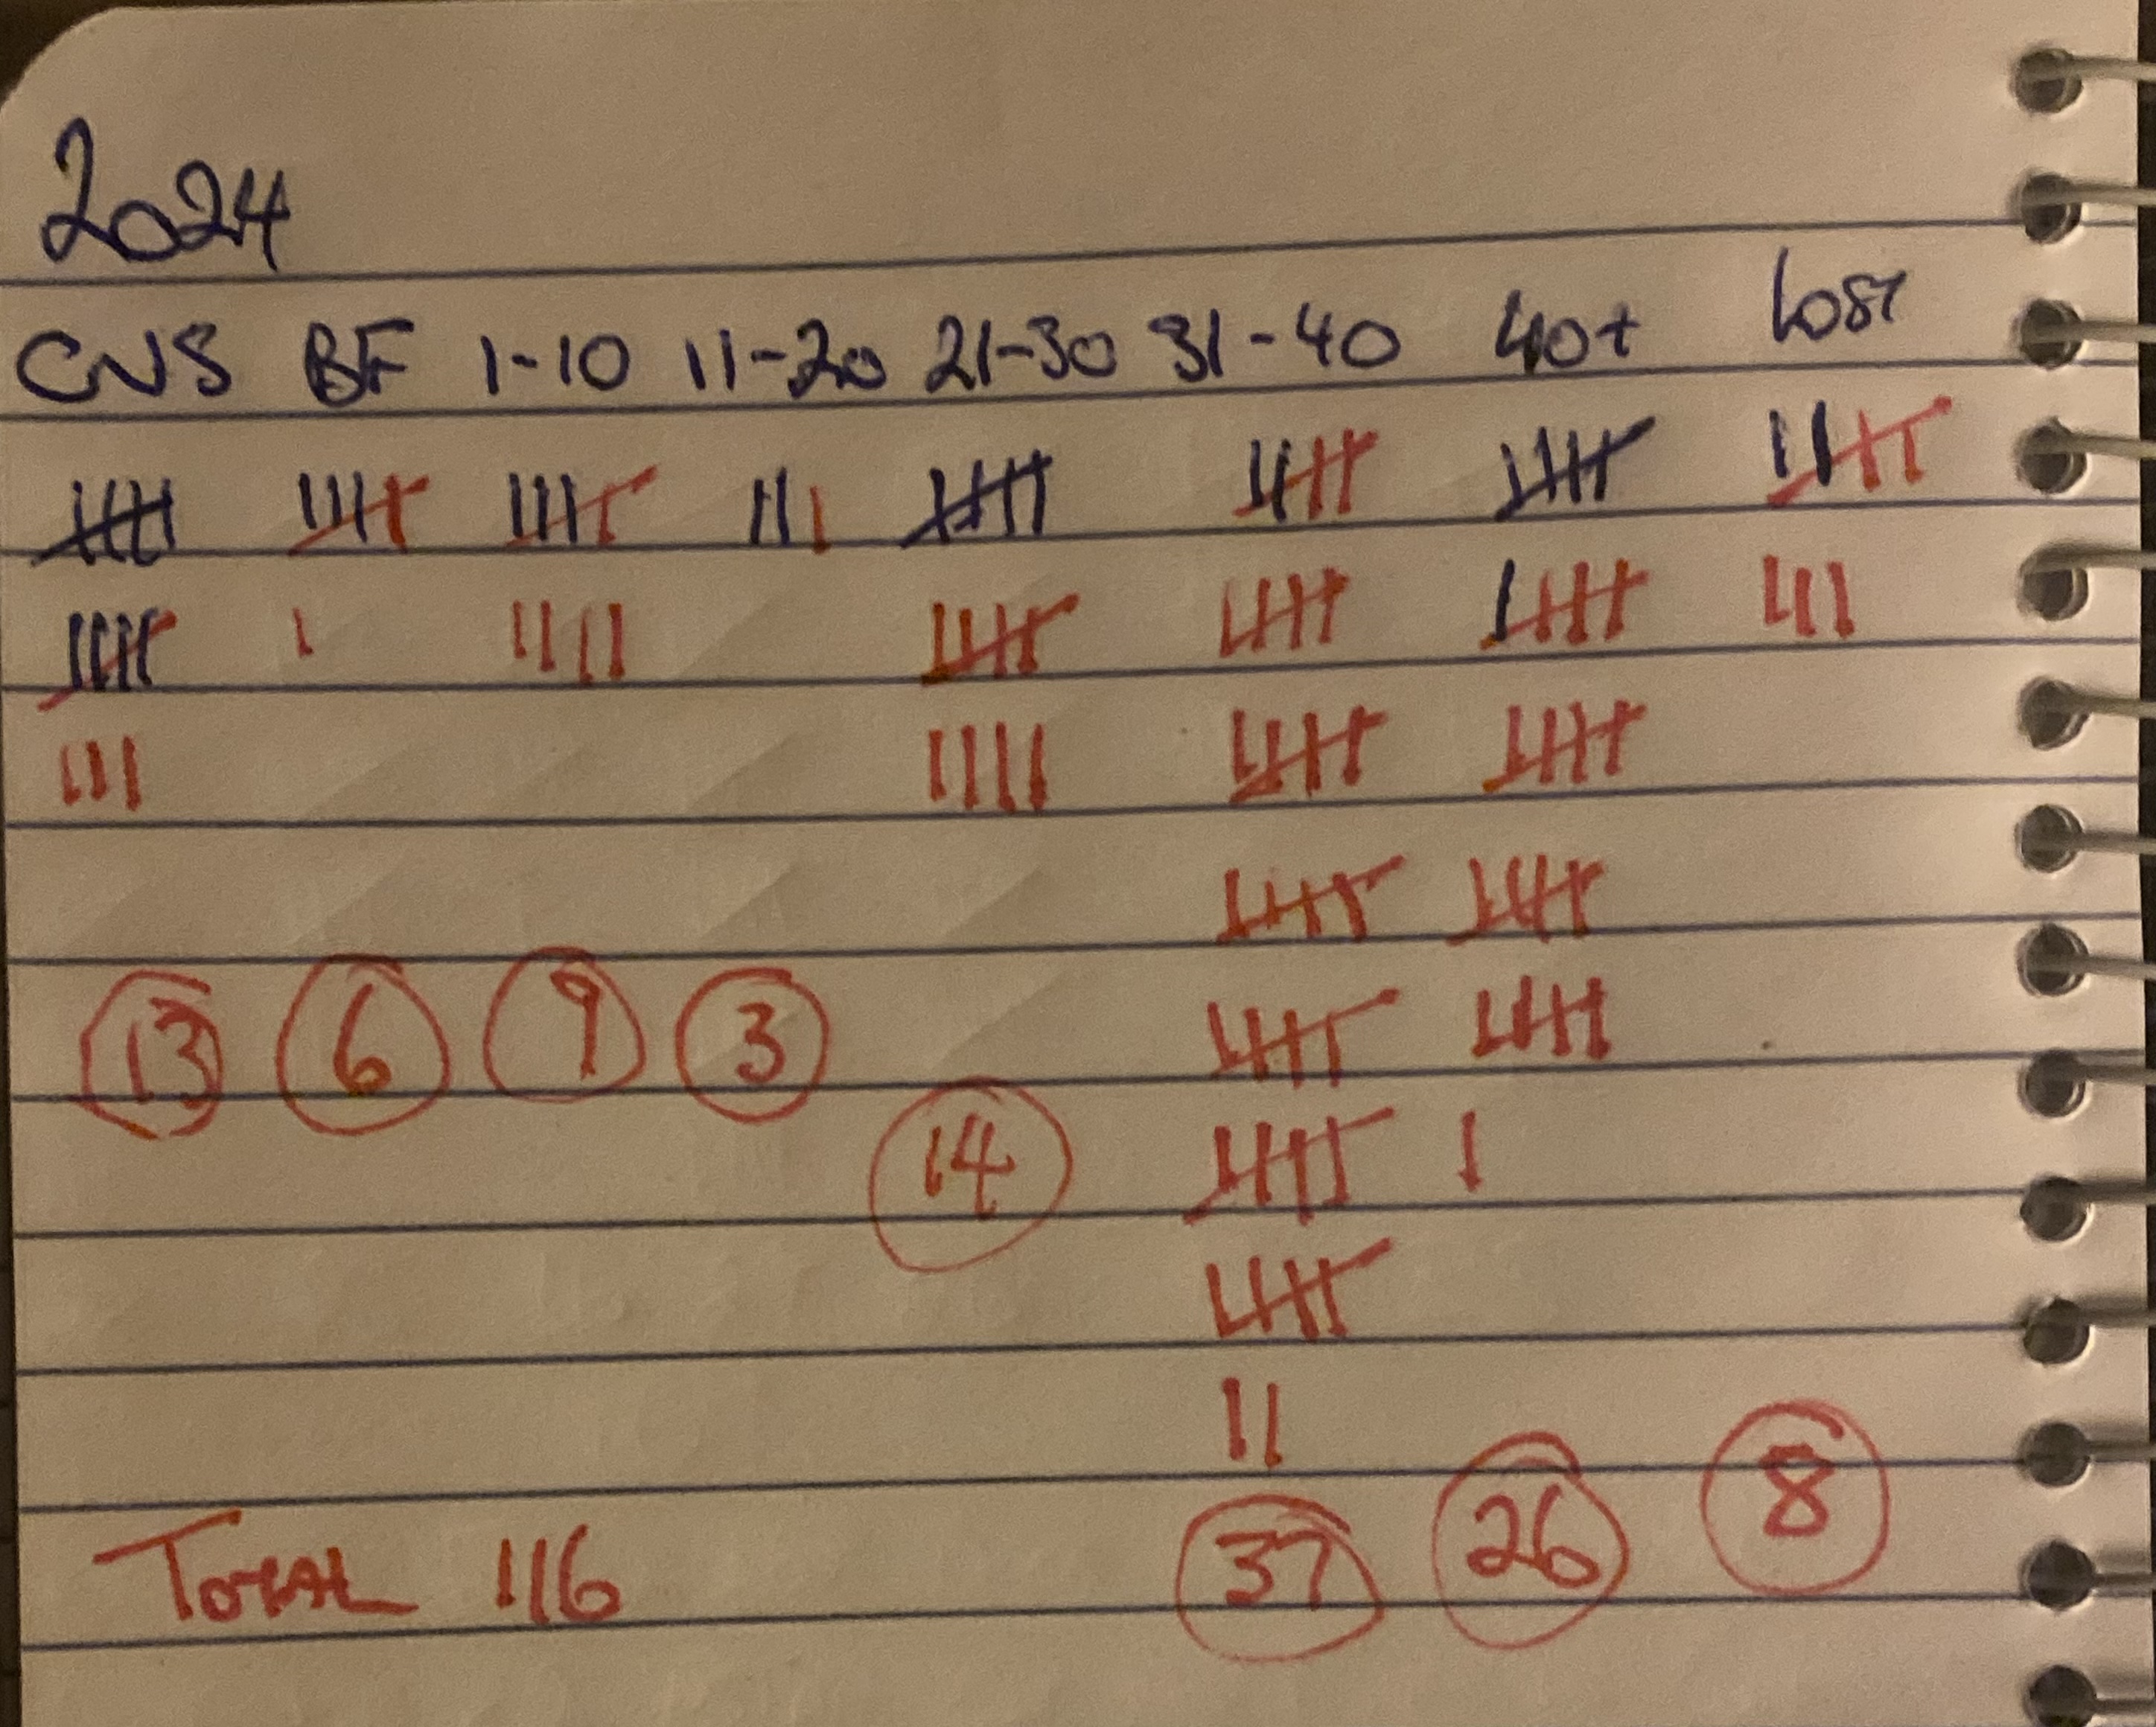 2024
CNS BF 1-10 11-20 21-30 31-40 40+ Lost
13 6 9 3
14
37 26 8
Total 116